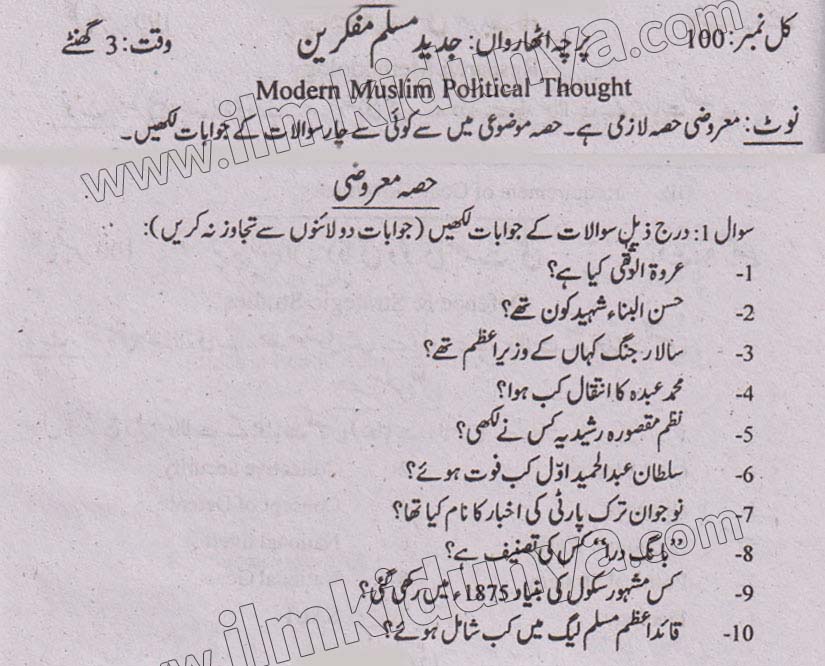 کل نمبر: 100 پرچہ اٹھارواں: جدید مسلم مفکرین وقت: 3 گھنٹے
Modern Muslim Political Thought
نوٹ: معروضی حصہ لازمی ہے۔ حصہ موضوعی میں سے کوئی سے چار سوالات کے جوابات لکھیں۔
حصہ معروضی
سوال 1: درج ذیل سوالات کے جوابات لکھیں (جوابات دو لائنوں سے تجاوز نہ کریں):
1- عروۃ الوثقی کیا ہے؟
2- حسن البناء شہید کون تھے؟
3- سالار جنگ کہاں کے وزیراعظم تھے؟
4- محمد عبدہ کا انتقال کب ہوا؟
5- نظم مقصورہ رشیدیہ کس نے لکھی؟
6- سلطان عبدالحمید اوّل کب فوت ہوئے؟
7- نوجوان ترک پارٹی کی اخبار کا نام کیا تھا؟
8- ”بانگ درا“ کس کی تصنیف ہے؟
9- کس مشہور سکول کی بنیاد 1875ء میں رکھی گئی؟
10- قائداعظم مسلم لیگ میں کب شامل ہوئے؟
www.ilmkidunya.com
www.ilmkidunya.com